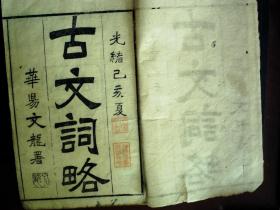 光緒己亥夏
古文詞略
華昜文龍署